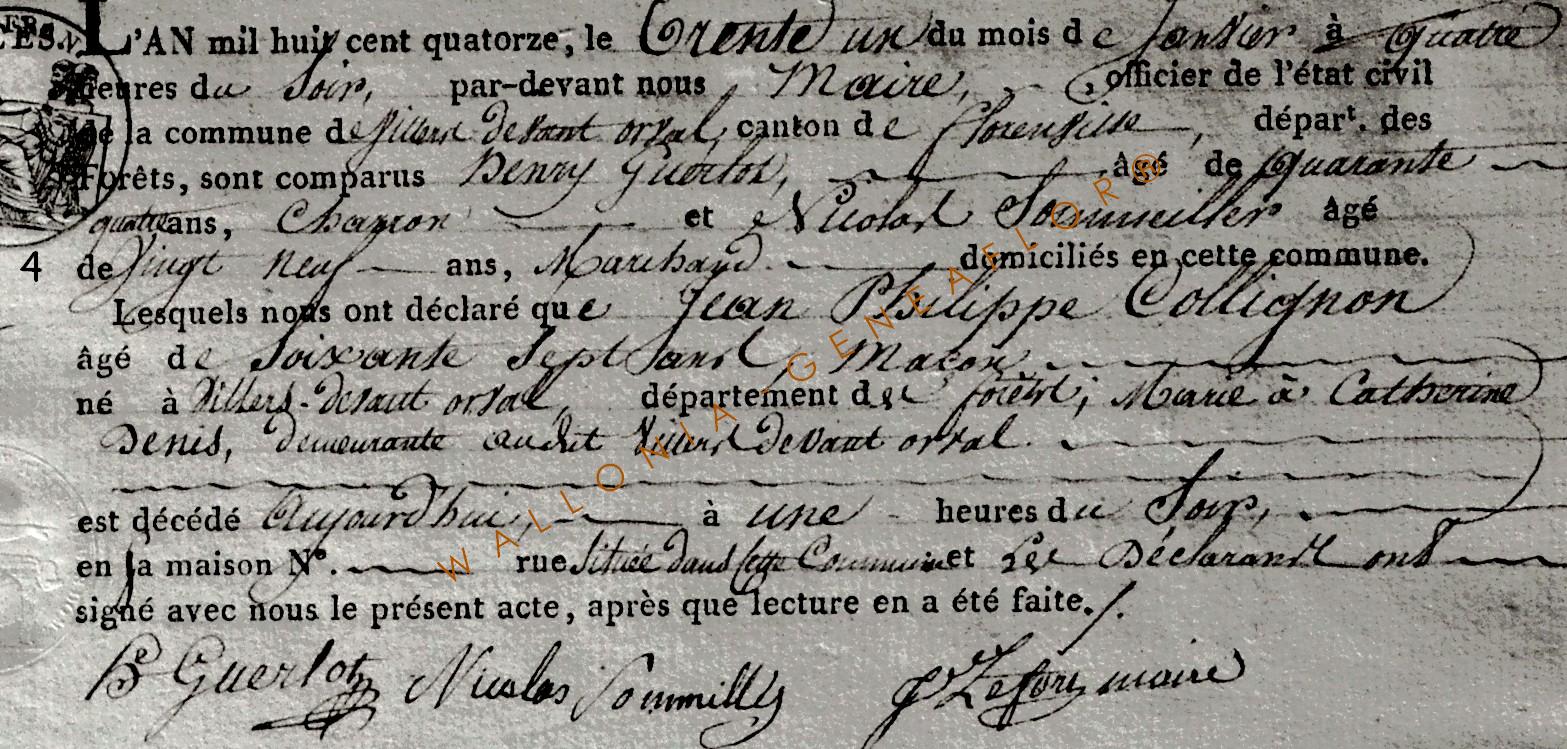 L'AN mil huit cent quatorze, le Trente un du mois de Janvier à quatre
heures du Soir, par-devant nous Maire, officier de l'état civil
de la commune de Villers devant orval, canton de florenville, départ. des
Forêts, sont comparus Henry Guerlot, âgé de quarante
quatre ans, Charron et Nicolas Sommeiller âgé
4 de Vingt neuf ans, Marchand domiciliés en cette commune.
Lesquels nous ont déclaré que Jean Philippe Collignon
âgé de Soixante Sept ans, Maçon
né à Villers-devant orval, département des forêts, Marié à Catherine
Denis, demeurante audit Villers devant orval.
est décédé Aujourd'hui, à une heures du Soir,
en la maison N°. rue Située dans cette Commune et Les Déclarants ont
signé avec nous le présent acte, après que lecture en a été faite./.
he Guerlot Nicolas Sommillie maire
WALLONIA-GENEAFLOR®